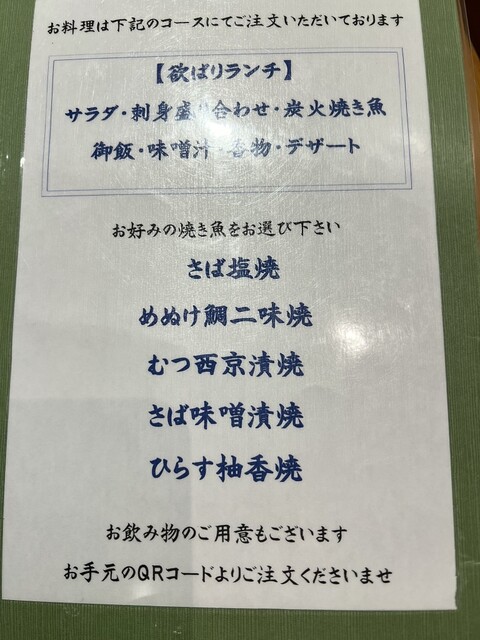 お料理は下記のコースにてご注文いただいております
【欲ばりランチ】
サラダ・刺身盛り合わせ・炭火焼き魚
御飯・味噌汁・香物・デザート
お好みの焼き魚をお選び下さい
さば塩焼
めぬけ鯛二味焼
むつ西京漬焼
さば味噌漬焼
ひらす柚香焼
お飲み物のご用意もございます
お手元のQRコードよりご注文くださいませ